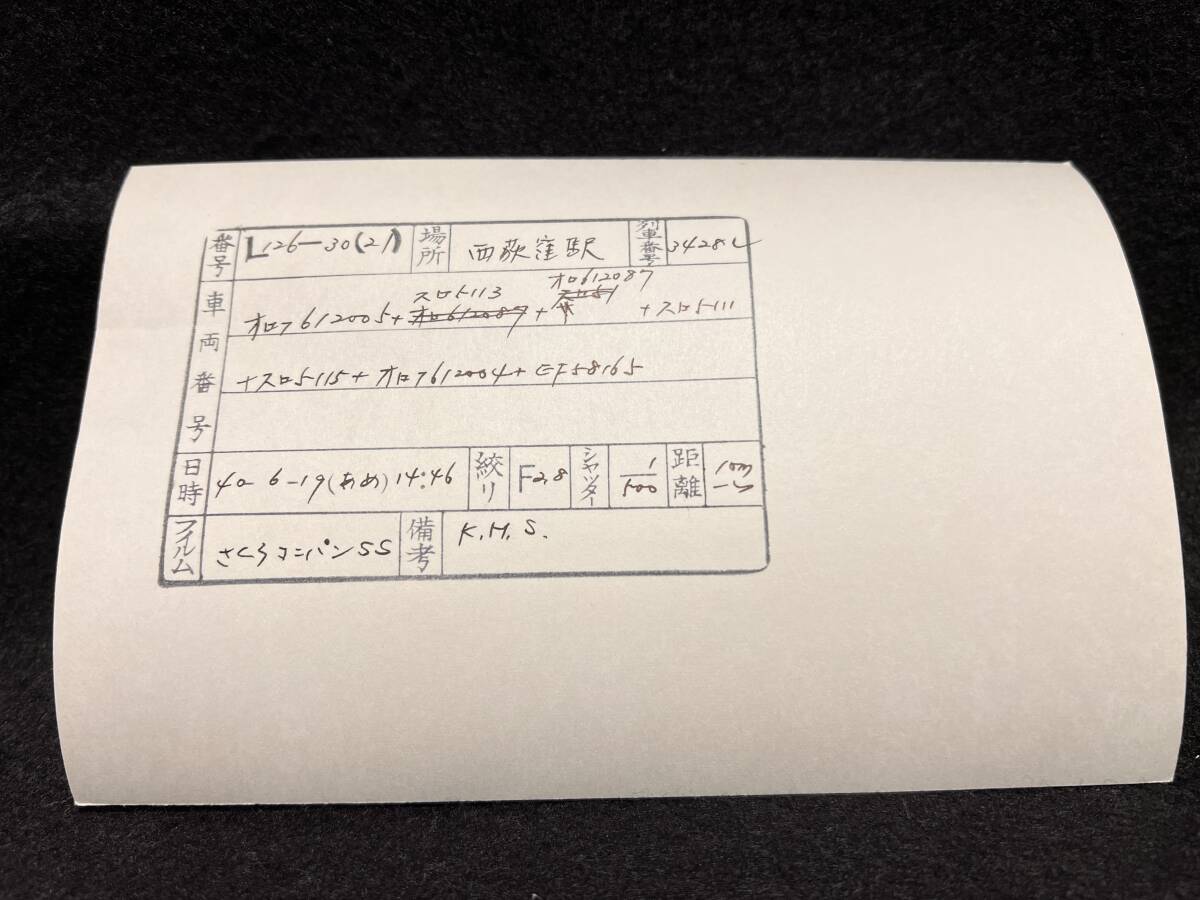 番号 L126-30(21) 場所 西荻窪駅 列車番号 3428レ
スロ5113 オロ612087
車両番号 オロフ612005+オロ612087+スロ51 +スロ5111
+スロ5115+オロフ612004+EF58165
日時 40-6-19(あめ)14:46 絞り F2.8 シャッター 1/500 距離 10m
フイルム さくらコニパンSS 備考 K.H.S.